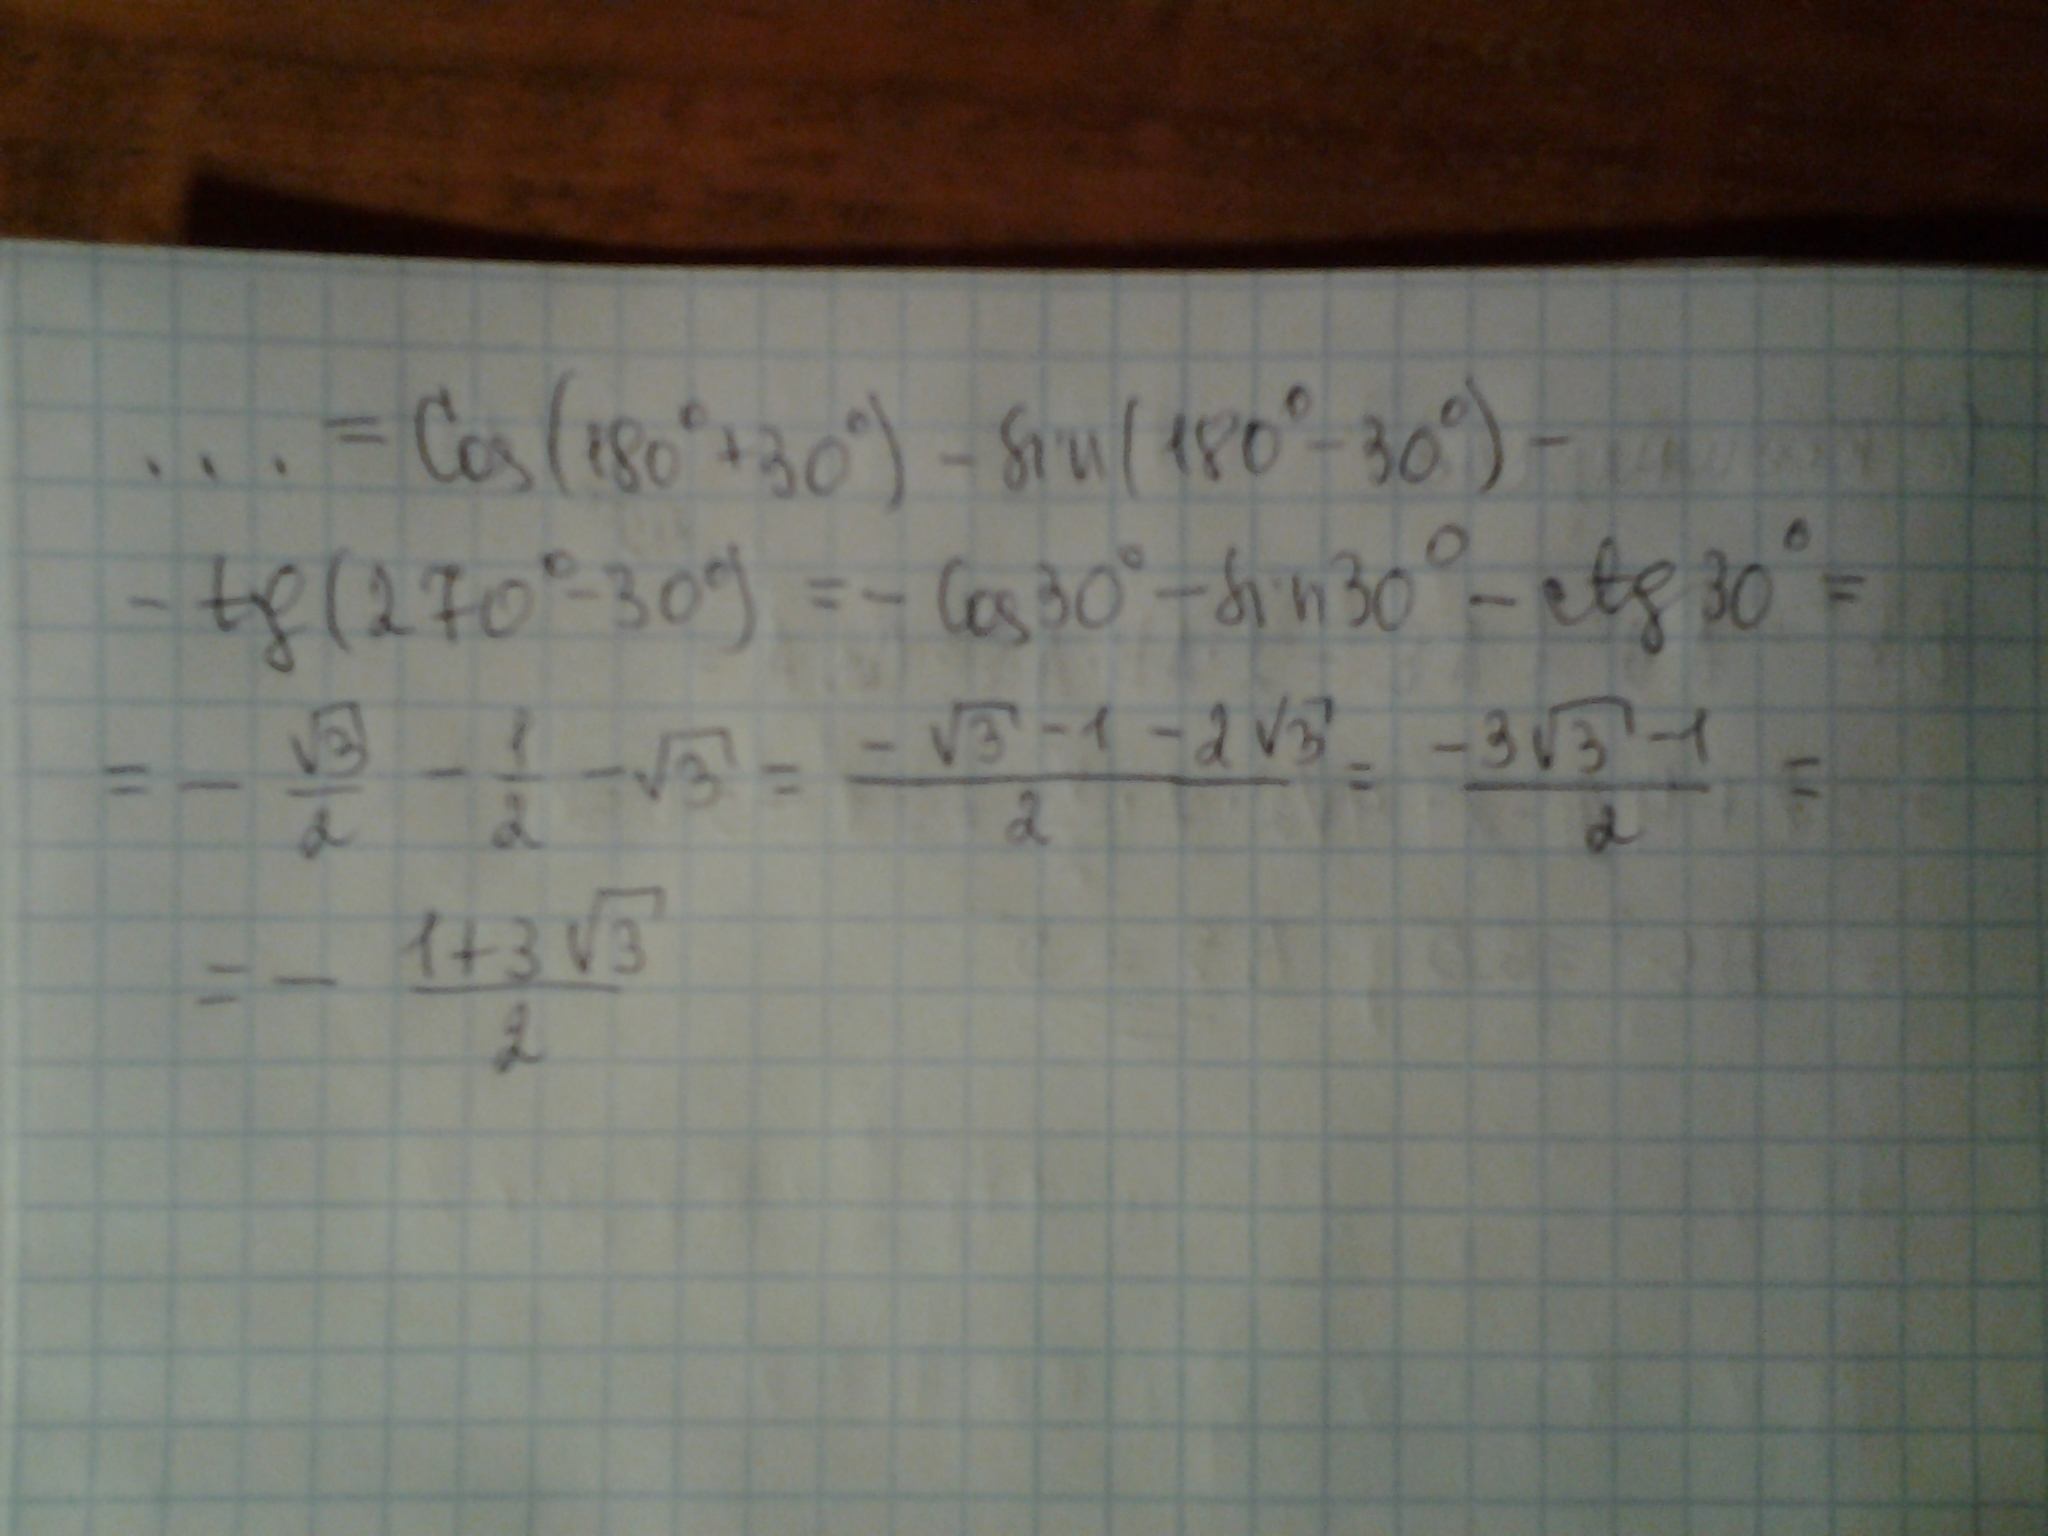 ... = Cos(180°+30°) - sin(180°-30°) -
- tg(270°-30°) = - Cos30° - sin30° - ctg30° =
= - √3/2 - 1/2 - √3 = (-√3 -1 -2√3)/2 = (-3√3 -1)/2 =
= - (1+3√3)/2